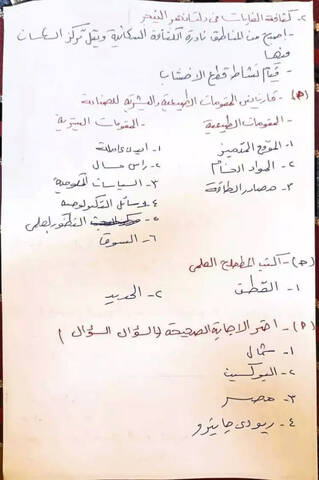 ٢- كثافة الغابات في دلتا نهر النيجر
- اصبح من المناطق نادرة الكثافة السكانية ويقل تركز السكان
فيها
- قيام نشاط قطع الاخشاب
(م) - قارن بين المقومات الطبيعية والبشرية للصناعة
- المقومات الطبيعية - المقومات البشرية
١- الموقع المتميز ١- ايدي عاملة
٢- المواد الخام ٢- راس مال
٣- مصادر الطاقة ٣- السياسات الحكومية
٤- وسائل التكنولوجية
٥- التطور العلمي
٦- السوق
(م) - اكتب المصطلح العلمي
١- القطن ٢- الحديد
(م) - اختر الاجابة الصحيحة (السؤال السؤال)
١- شمال
٢- البوكسيت
٣- مصر
٤- ريودي جانيرو